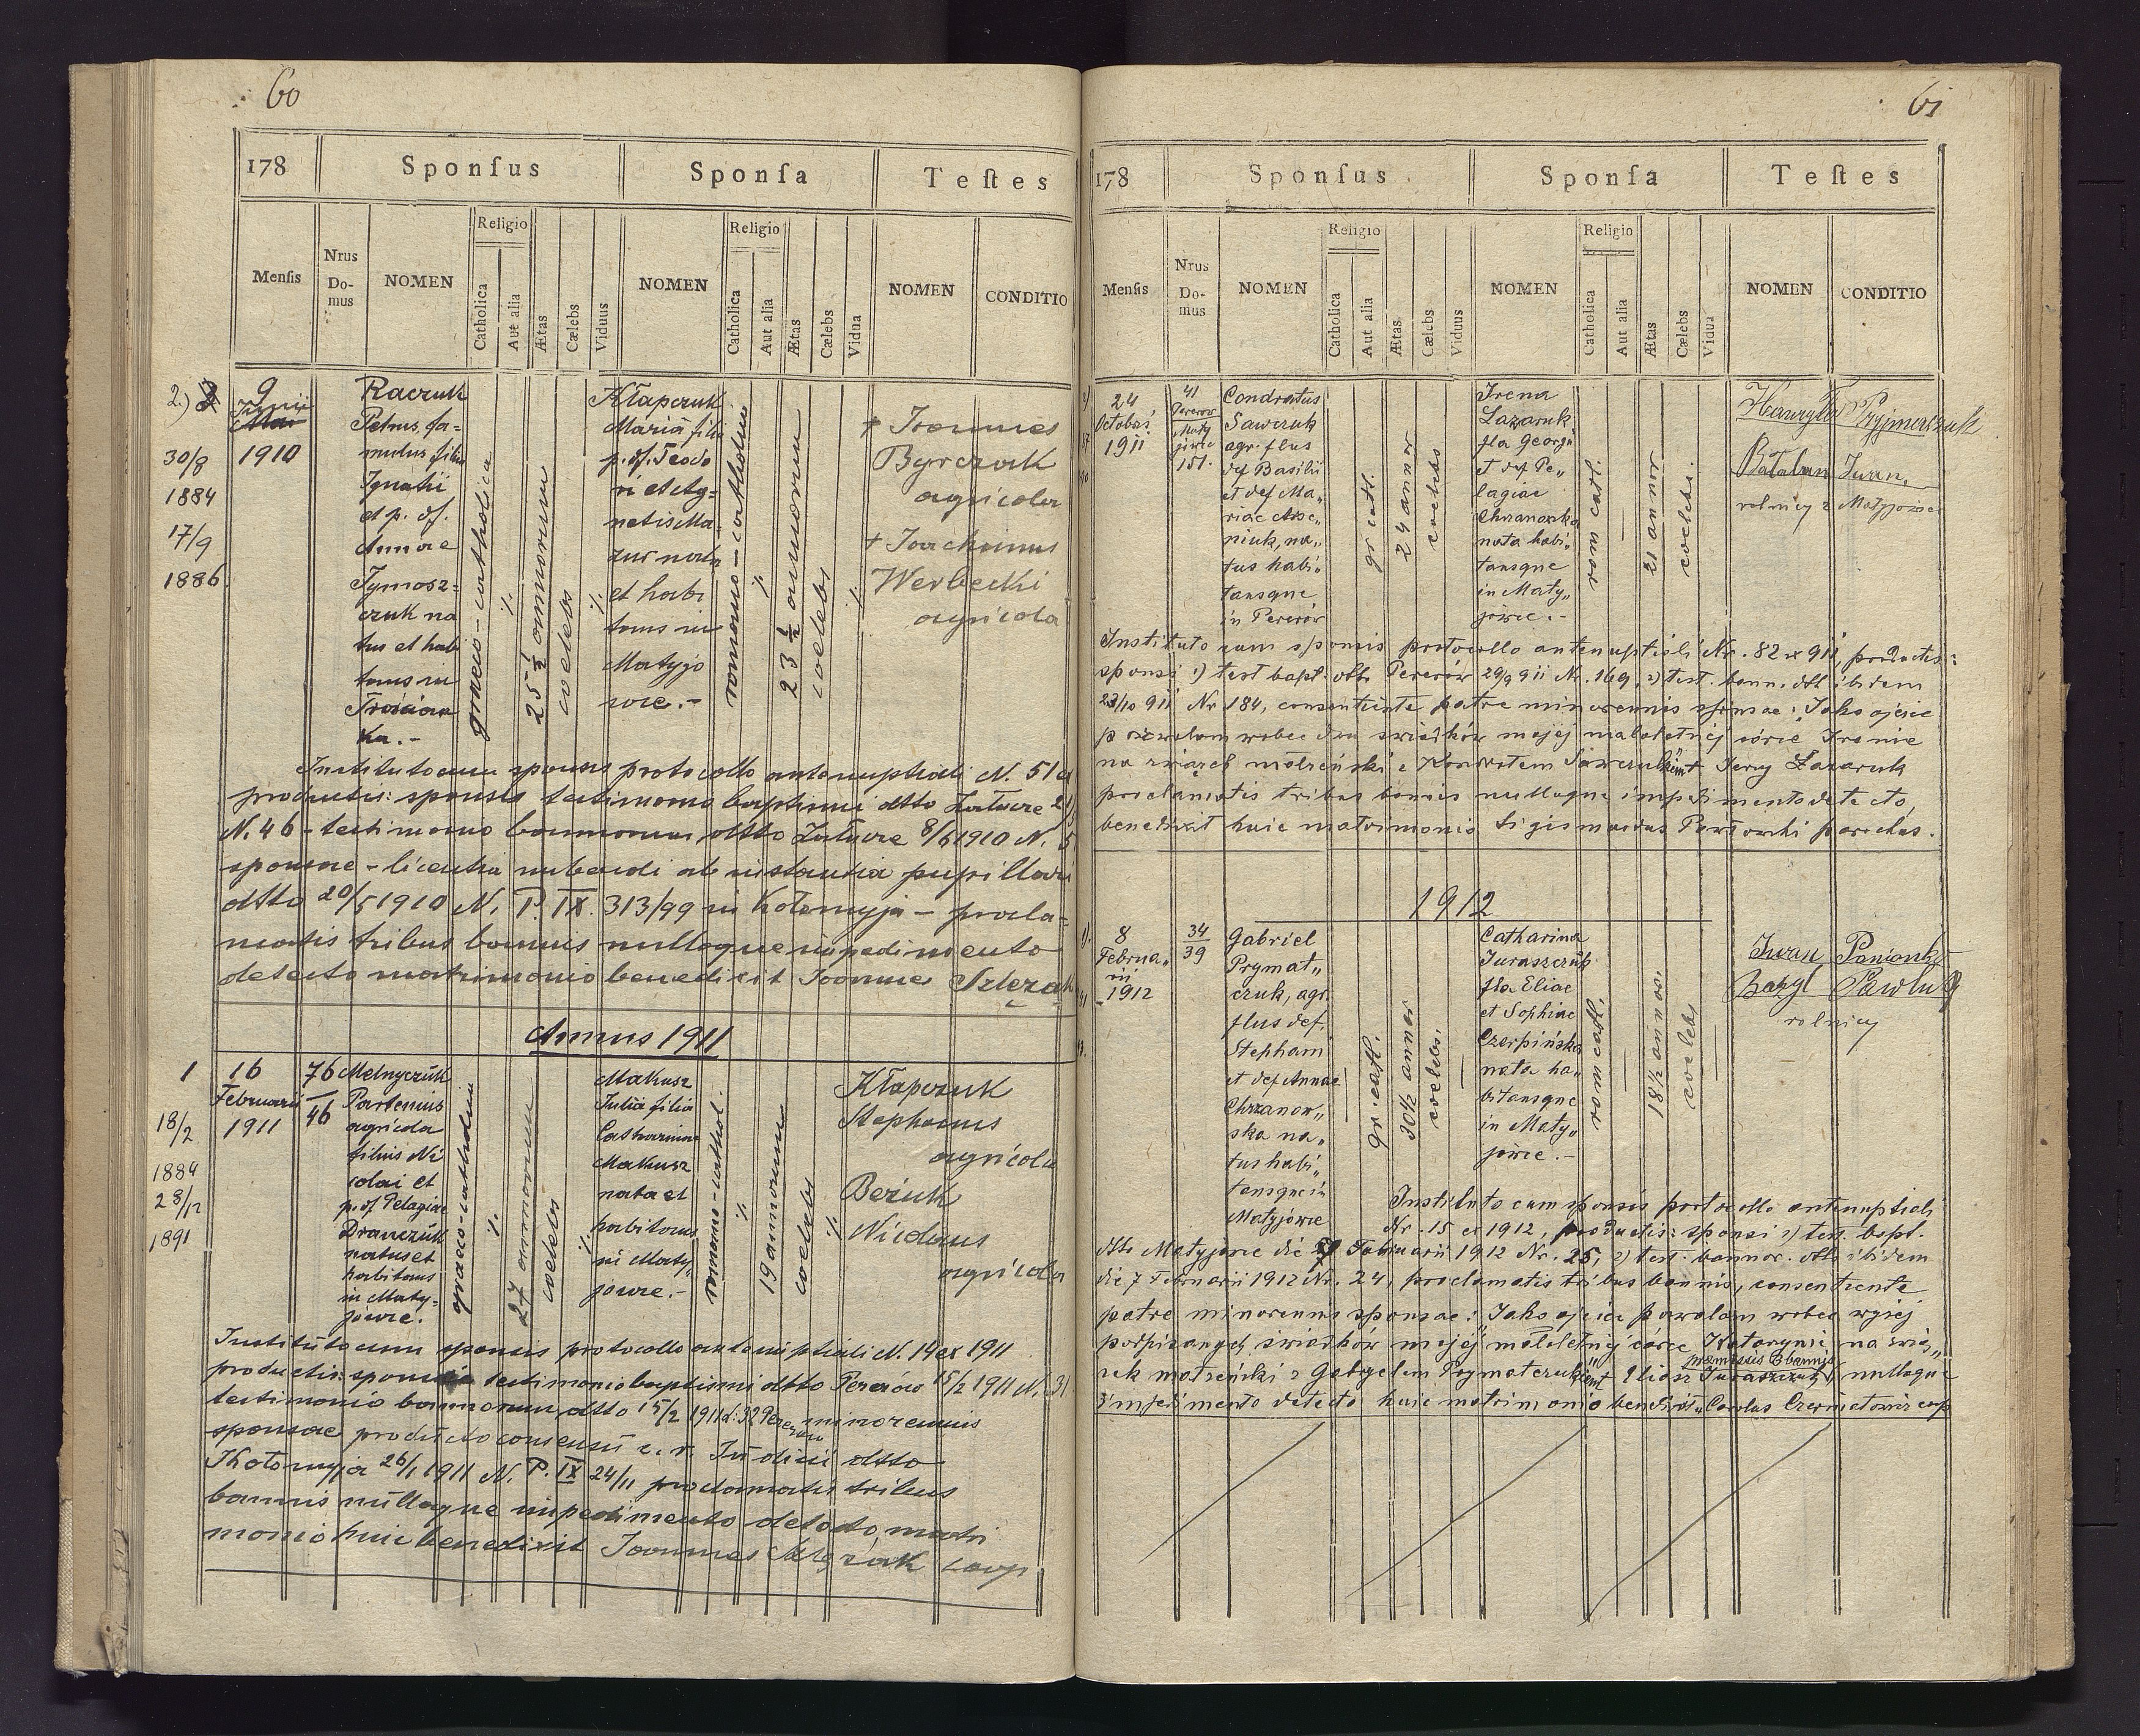 60
178 Sponſus Sponſa Teſtes
Religio Religio
Menſis Nrus Do-mus NOMEN Catholica Aut alia Ætas Cælebs Viduus NOMEN Catholica Aut alia Ætas Cælebs Vidua NOMEN CONDITIO
2.)
9
Junii
1910
30/8
1884
17/9
1886
Raczuk
Petrus, fa-
mulus filius
Ignatii
et p. df.
Annae
Tymosz-
czuk na
tus et habi
tans in
graeco-catholica
25 ½ annorum
coelebs
Kłapczuk
Maria filia
p. df. Teodo
ri et Ag-
netis Ma-
zur nata
et habi
tans in
Matyjo
wce.-
romano-catholica
23 ½ annorum
coelebs
+ Joannes
Byrczak
agricola
+ Joachimus
Werbecki
agricola
Instituto cum sponsis protocollo antenuptiali N. 51
productis: sponsi testimonio baptismi dtto
N. 46 - testimonio bannorum dtto 8/6 1910 N. 5
sponsae - licentia nubendi ab instantia pupillari
dtto 20/5 1910 N. P. IX. 313/99 in Kołomyja - procla-
matis tribus bannis nulloque impedimento
detecto matrimonio benedixit Joannes
Annus 1911
1
16
Februarii
1911
18/2
1884
28/12
1891
76
46
Melnyczuk
Partenius
agricola
filius Ni
colai et
p. df. Pelagiae
Dranczuk
natus et
habitans
in Maty-
jowce.
graeco-catholica
27 annorum
coelebs
Makusz
Julia filia
Catharinae
Makusz
nata et
habitans
in Maty-
jowce.-
romano-cathol.
19 annorum
coelebs
Kłapczuk
Stephanus
agricola
Beziuk
Nicolaus
agricola
Instituto cum sponsis protocollo antenuptiali N. 14 ex 1911
productis: sponsi testimonio baptismi dtto Pererów 15/2 1911 N. 31
testimonio bannorum dtto 15/2 1911 d: 32 Pererów minorennis
sponsae producto consensu c. r. Judicii dtto
Kołomyja 26/1 1911 N. P. IX 24/11 proclamatis tribus
bannis nulloque impedimento detecto matri
monio huic benedixit Joannes coop
61
178 Sponſus Sponſa Teſtes
Religio Religio
Menſis Nrus Do-mus NOMEN Catholica Aut alia Ætas Cælebs Viduus NOMEN Catholica Aut alia Ætas Cælebs Vidua NOMEN CONDITIO
24
Octobas
1911
41
Pererów
Maty
jowce
151.
Condratus
Sawczuk
agr. flus
def Basilii
et def Ma„
riae Arse„
niuk, na„
tus habi„
tansque
in Pererów
gr. catl.
24 annor
coelebs
Irena
Lazaruk
fla Georgii
et def Pe„
lagiae
Chrzanowska
nata habi„
tansque
in Maty„
jowce.-
rom catl.
21 annor
coelebs.
Hawryło Pryjmaczuk
Bałaban Iwan,
rolnicy z Matyjowiec
Instituto cum sponsis protocollo antenuptiali Nr. 82 ex 911, productis:
sponsi 1) test bapt. dtto Pererów 29/9 911 Nr. 169, 2) test. bann. dtto ibidem
23/10 911 Nr 184, consentiente patre minorennis sponsae: „Jako ojciec
pozwalam wobec dwu świadków mojej małoletniej córce Irenie
na związek małżeński z Kondratem Sawczukiem" Jerzy Lazaruk
proclamatis tribus bannis nulloque impedimento detecto,
benedixit huic matrimonio Sigismundus Pawłowski parochus.
1912
1).
8
Februa„
rii
1912
34
39
Gabriel
Prymat„
czuk, agr.
flus def.
Stephani
et def Annae
Chrzanow„
ska na„
tus habi„
tansque in
Matyjowce
gr. catl.
30½ annor
coelebs.
Catharina
Juraszczuk
fla Eliae
et Sophiae
Czerpińska
nata ha„
bitansque
in Maty„
jowce.-
rom catl.
18½ annor.
coelebs
Iwan Paniouk
Bazyl Pawluk
rolnicy
Instituto cum sponsis protocollo antenuptiali
Nr. 15 ex 1912, productis: sponsi 1) test. bapt.
dtto Matyjowce die 7 Februarii 1912 Nr. 25, 2) test. bannor. dtto ibidem
die 7 Februarii 1912 Nr. 24, proclamatis tribus bannis, consentiente
patre minorennis sponsae: „Jako ojciec pozwalam wobec wyżej
podpisanych świadków mojej małoletniej córce Katarynie na zwią„
zek małżeński z Gabryelem Prymatczukiem" Eliasz Juraszczuk, praemissis 3 bannis nulloque
impedimento detecto huic matrimonio benedixit Carolus coop